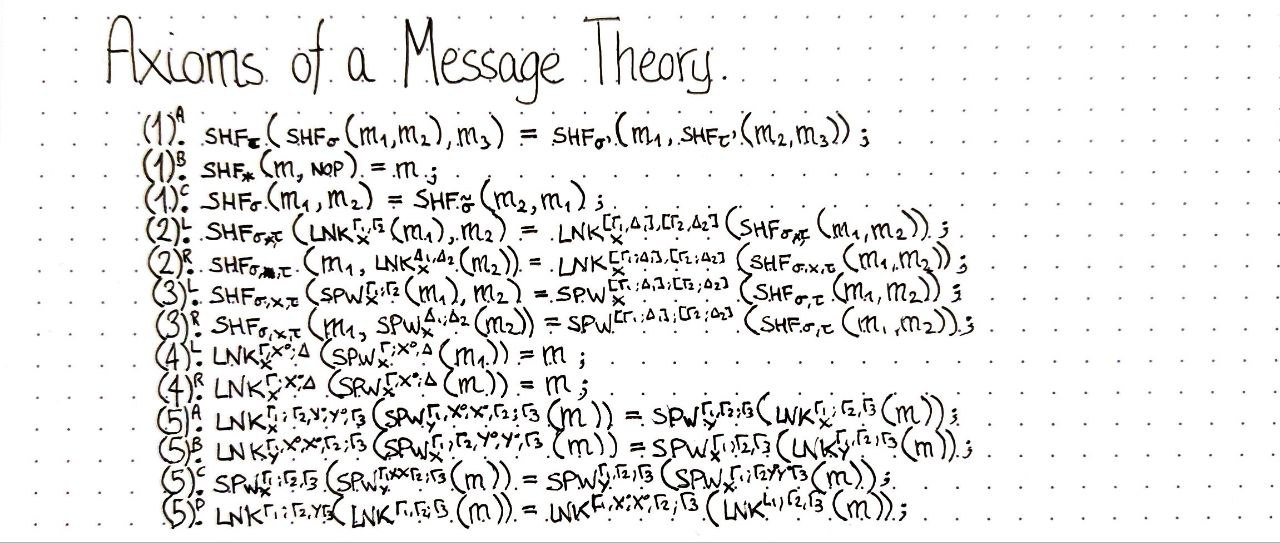 Axioms of a Message Theory.
(1)ᴬ. SHF_τ(SHF_σ(m₁,m₂),m₃) = SHF_σ'(m₁,SHF_τ'(m₂,m₃));
(1)ᴮ. SHF_*(m,NOP) = m;
(1)ᶜ. SHF_σ(m₁,m₂) = SHF_σ̃(m₂,m₁);
(2)ᴸ. SHF_σ,x,τ(LNK_x^Γ₁,Γ₂(m₁),m₂) = LNK_x^[Γ₁,Δ₁],[Γ₂,Δ₂](SHF_σ,x,τ(m₁,m₂));
(2)ᴿ. SHF_σ,x,τ(m₁,LNK_x^Δ₁,Δ₂(m₂)) = LNK_x^[Γ₁;Δ₁],[Γ₂;Δ₂](SHF_σ,x,τ(m₁,m₂));
(3)ᴸ. SHF_σ,x,τ(SPW_x^Γ₁;Γ₂(m₁),m₂) = SPW_x^[Γ₁;Δ₁];[Γ₂;Δ₂](SHF_σ,τ(m₁,m₂));
(3)ᴿ. SHF_σ,x,τ(m₁,SPW_x^Δ₁;Δ₂(m₂)) = SPW^[Γ₁;Δ₁];[Γ₂;Δ₂](SHF_σ,τ(m₁,m₂));
(4)ᴸ. LNK_x^Γ;X°;Δ(SPW_x^Γ;X°,Δ(m₁)) = m;
(4)ᴿ. LNK_x^Γ;X°;Δ(SPW_x^Γ;X°;Δ(m)) = m;
(5)ᴬ. LNK_x^Γ₁;Γ₂,Y•,Y°,Γ₃(SPW_y^Γ₁,X°,X•,Γ₂;Γ₃(m)) = SPW_y^Γ₁,Γ₂;Γ₃(LNK_x^Γ₁;Γ₂,Γ₃(m));
(5)ᴮ. LNK_y^Γ₁,X°,X•,Γ₂;Γ₃(SPW_x^Γ₁;Γ₂,Y°,Y•,Γ₃(m)) = SPW_x^Γ₁;Γ₂,Γ₃(LNK_y^Γ₁,Γ₂;Γ₃(m));
(5)ᶜ. SPW_x^Γ₁;Γ₂,Γ₃(SPW_y^Γ₁XXΓ₂;Γ₃(m)) = SPW_y^Γ₁,Γ₂;Γ₃(SPW_x^Γ₁;Γ₂YYΓ₃(m));
(5)ᴰ. LNK^Γ₁;Γ₂,YΓ₃(LNK^Γ₁,Γ₂;Γ₃(m)) = LNK^Γ₁,X°,X°,Γ₂;Γ₃(LNK^Γ₁;Γ₂,Γ₃(m));